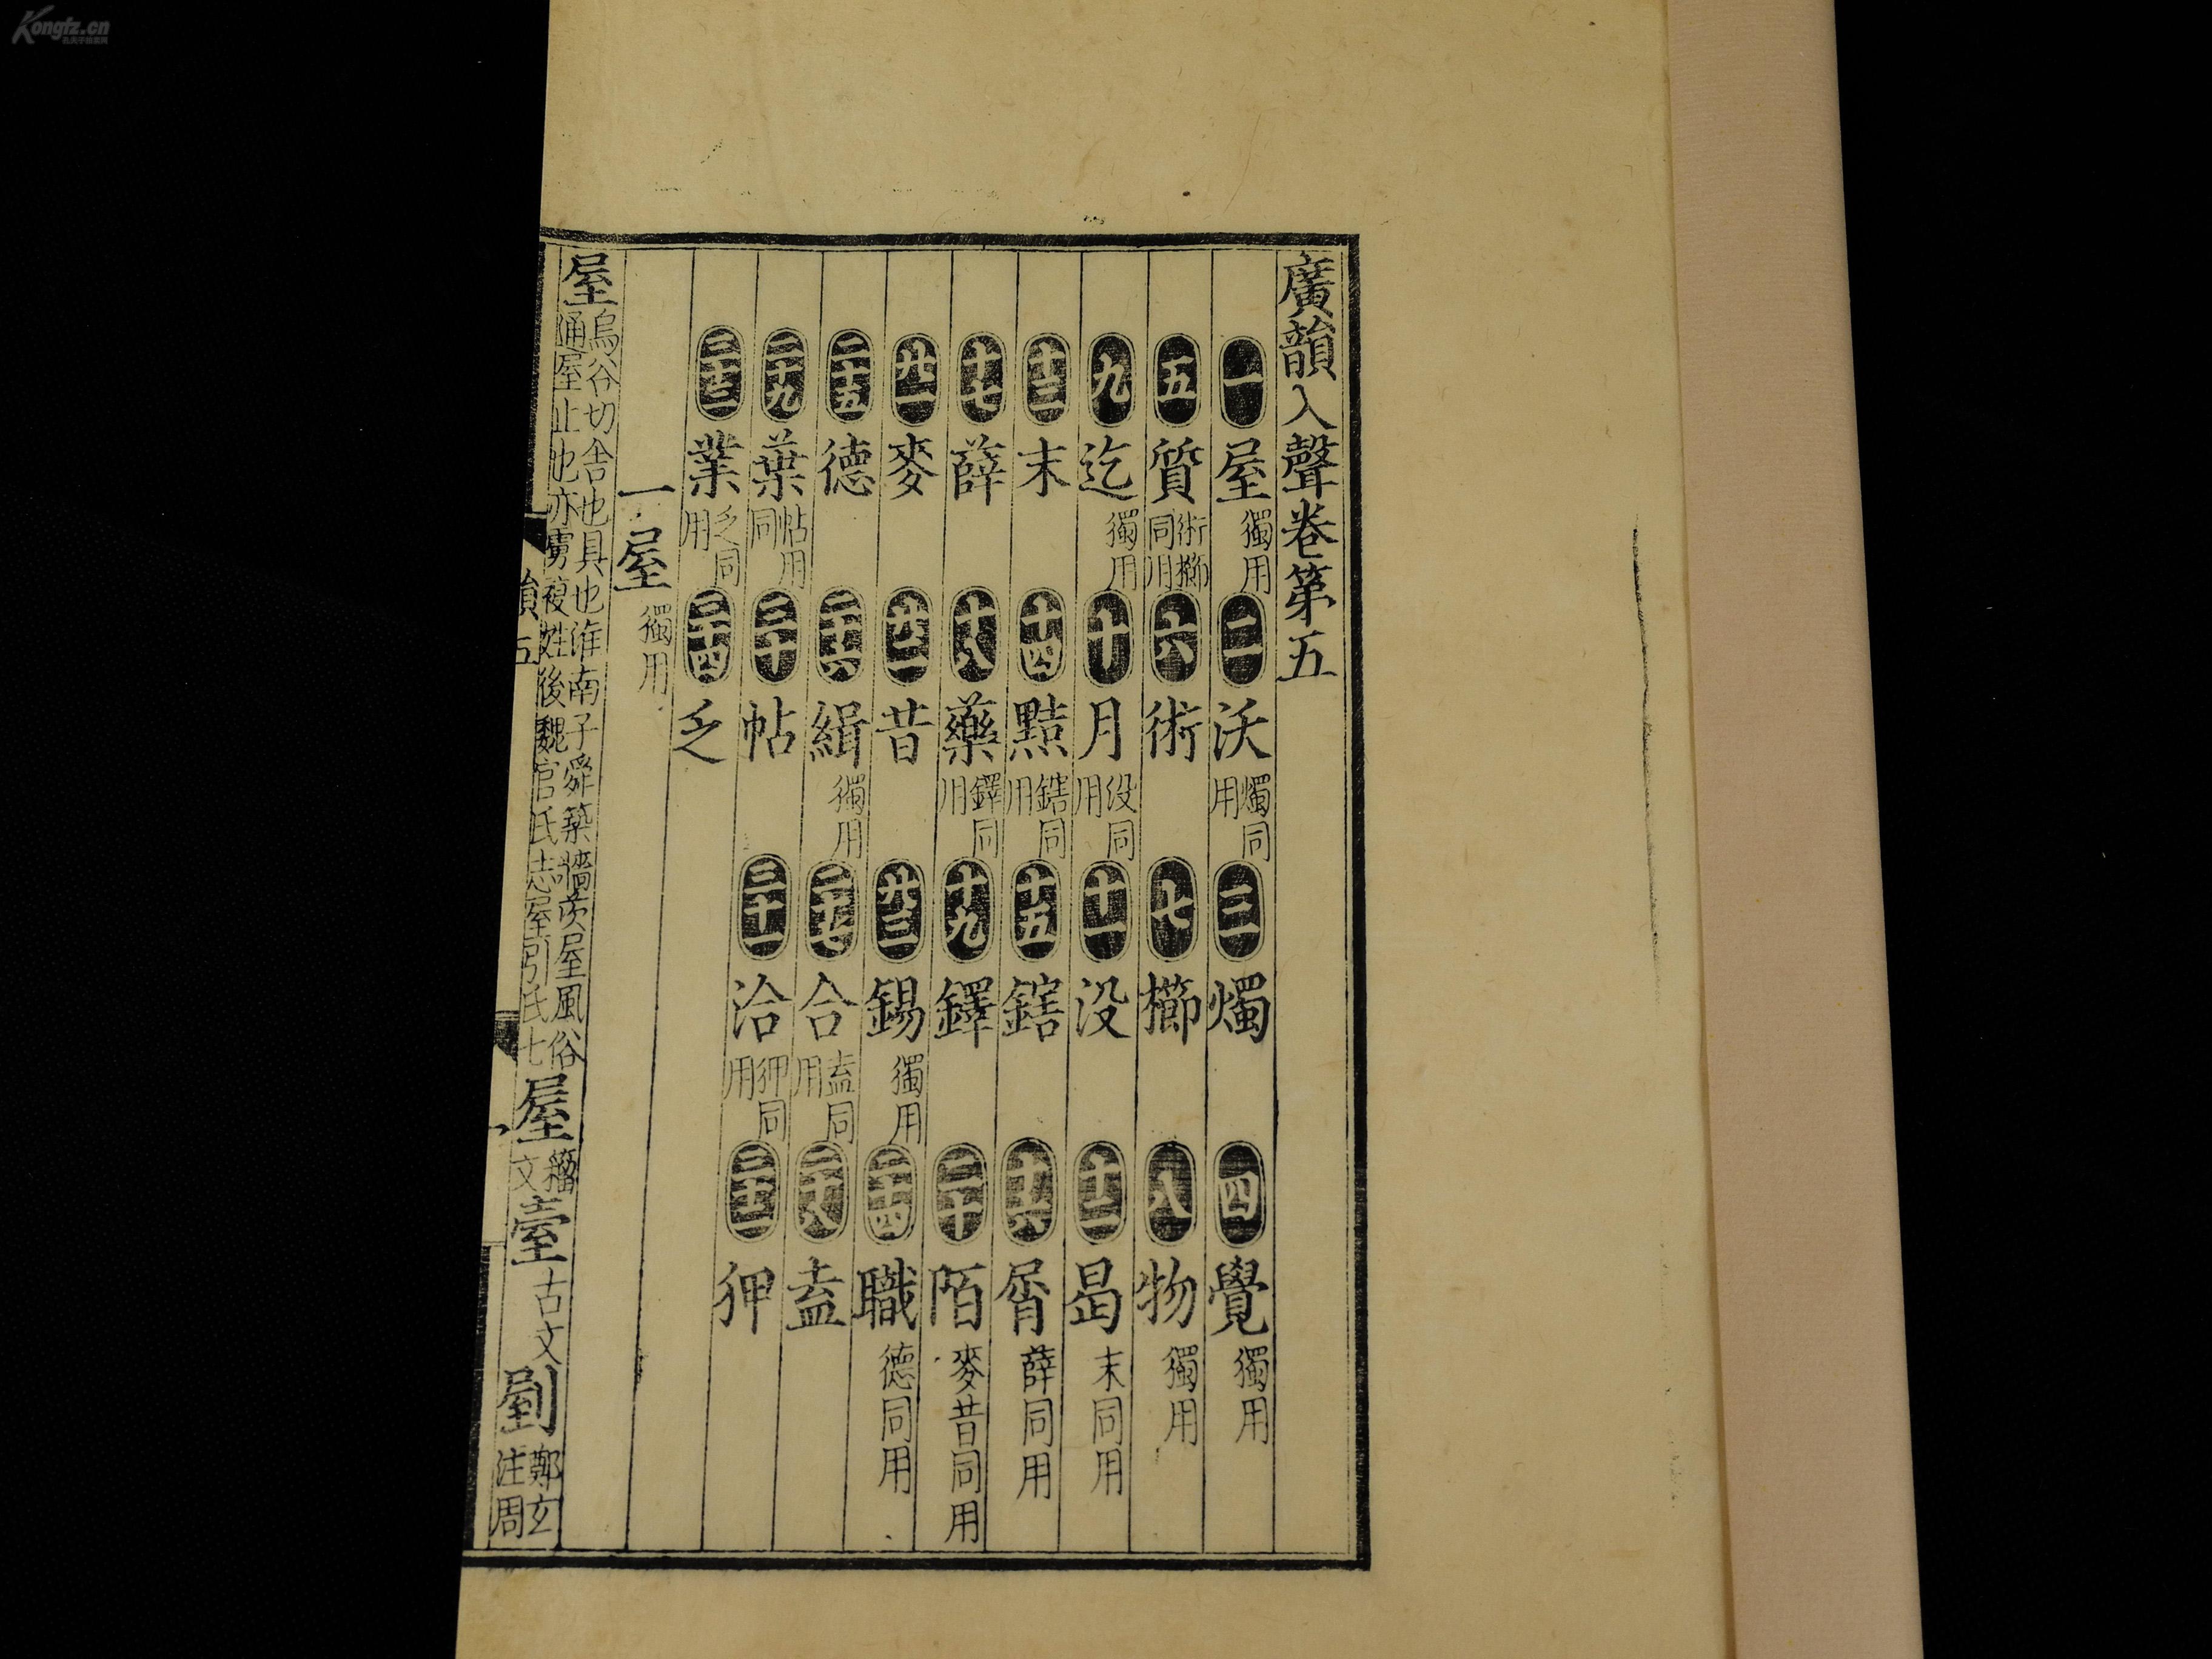 廣韻入聲卷第五
一 屋 獨用 二 沃 燭同用 三 燭 四 覺 獨用
五 質 術櫛同用 六 術 七 櫛 八 物 獨用
九 迄 獨用 十 月 没同用 十一 没 十二 曷 末同用
十三 末 十四 黠 鎋同用 十五 鎋 十六 屑 薛同用
十七 薛 十八 藥 鐸同用 十九 鐸 二十 陌 麥昔同用
廿一 麥 廿二 昔 廿三 錫 獨用 二十四 職 德同用
二十五 德 二十六 緝 獨用 二十七 合 盍同用 二十八 盍
二十九 葉 怗同用 三十 帖 三十一 洽 狎同用 三十二 狎
三十三 業 乏同用 三十四 乏
一 屋 獨用
屋 烏谷切舍也具也淮南子舜築牆茨屋風俗通屋止也亦虜複姓後魏官氏志屋引氏七 屋 籀文 臺 古文 剭 鄭玄注周
韻五
Kongfz.cn
孔夫子旧书网